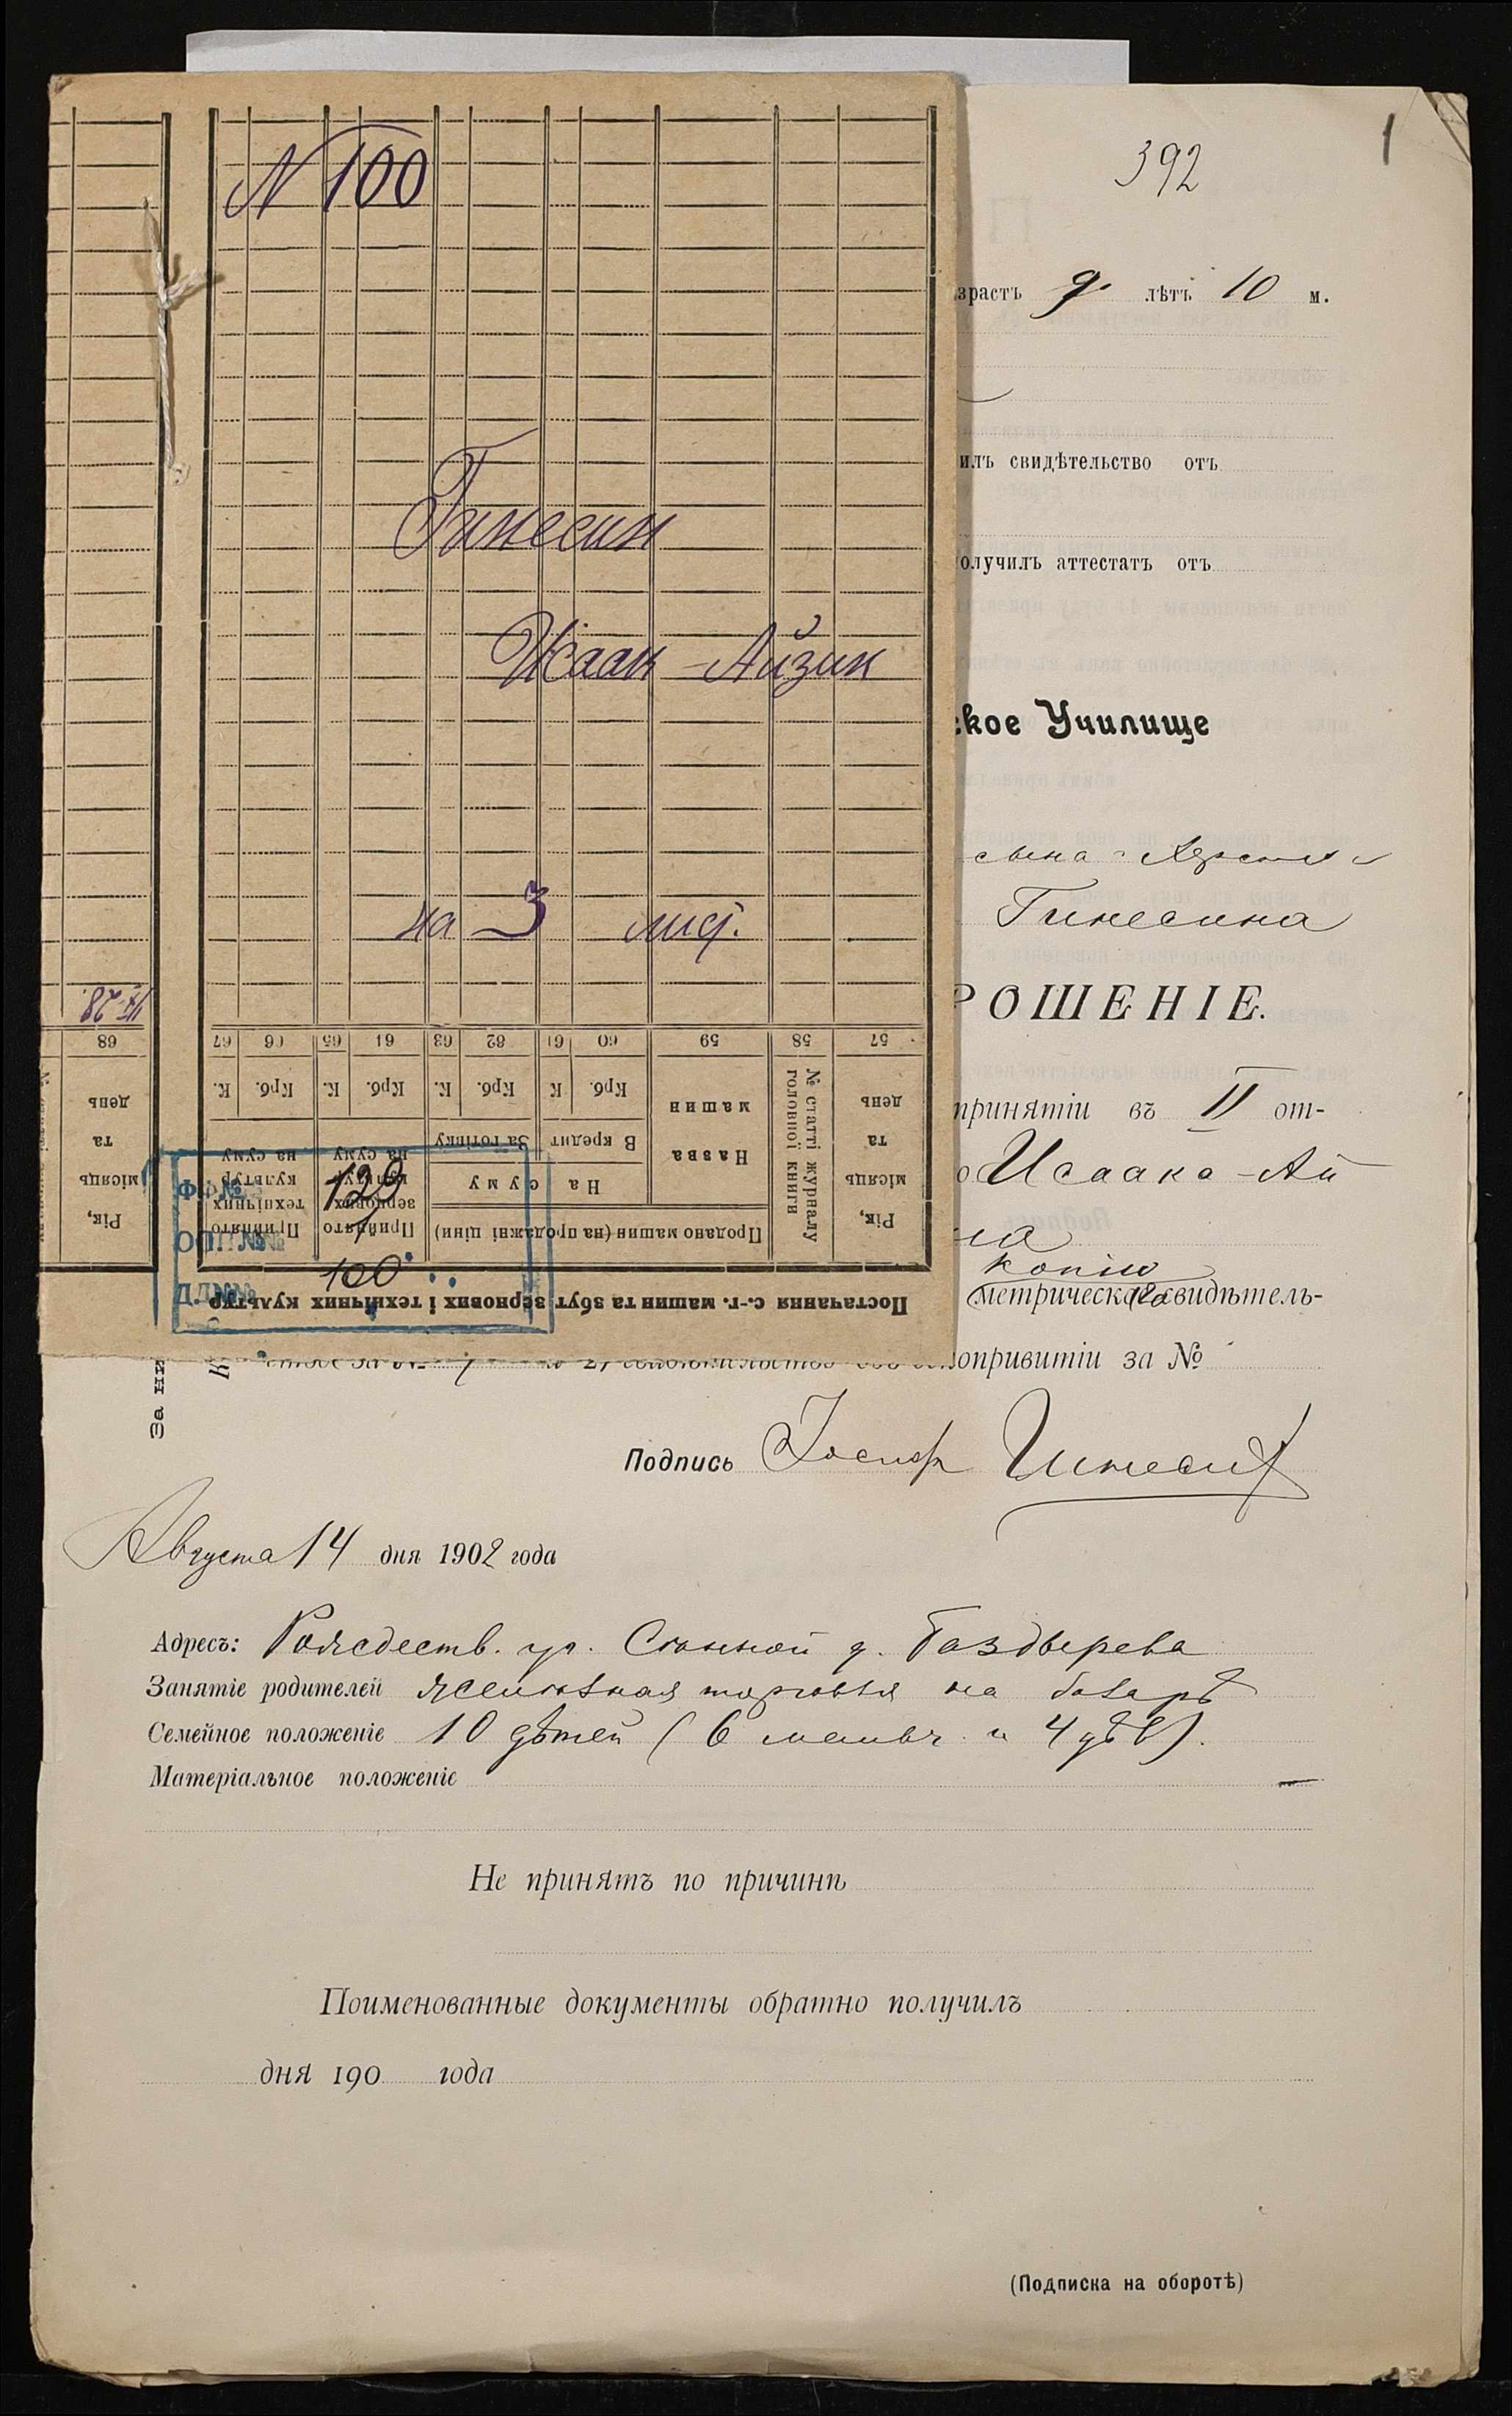 N 100
Гинесин
Исаак-Айзик
на 3 лист.
VII-28.
68
день
та
місяць
Рік,
67
66
65
64
63
62
61
60
59
58
57
К.
Крб.
К.
Крб.
К.
Крб.
К
Крб.
На суму
За готівку
В кредит
Назва машин
№ статті журналу головної книги
Рік, місяць та день
Прийнято технічних культур на суму
Прийнято зернових культур на суму
Продано машин (на продажні ціни)
Постачання с.-г. машин та збут зернових і технічних культур
ФР.№
129
ОП.№
1
Д.№
100
392
1
зрастъ 9 лѣтъ 10 м.
илъ свидѣтельство отъ
олучилъ аттестатъ отъ
ское Училище
сына
Гинесина
РОШЕНІЕ.
принятіи въ II от-
Исаака-Ай
на
копію
метрическаго свидѣтель-
опривитіи за №
За
Подпись Іосиф Гинесин
Августа 14 дня 1902 года
Адресъ: Рождеств. уг. Сѣнной д. Газдырева
Занятіе родителей желѣзная торговля на базарѣ
Семейное положеніе 10 дѣтей (6 мальч. и 4 дѣв).
Матеріальное положеніе —
Не принятъ по причинѣ
Поименованные документы обратно получилъ
дня 190 года
(Подписка на оборотѣ)